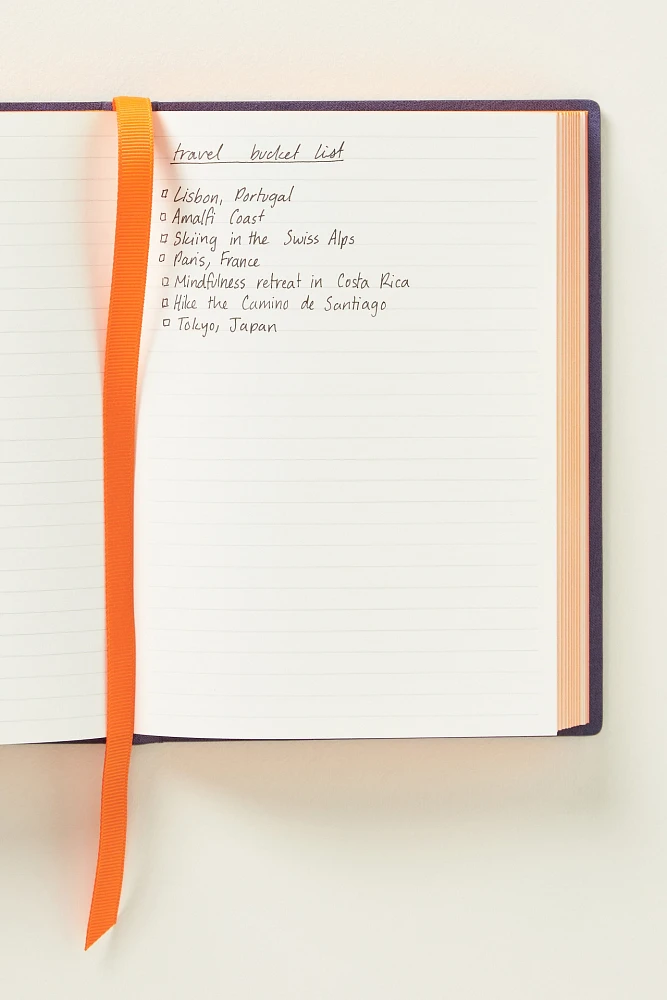 travel bucket list
Lisbon, Portugal
Amalfi Coast
Skiing in the Swiss Alps
Paris, France
Mindfulness retreat in Costa Rica
Hike the Camino de Santiago
Tokyo, Japan